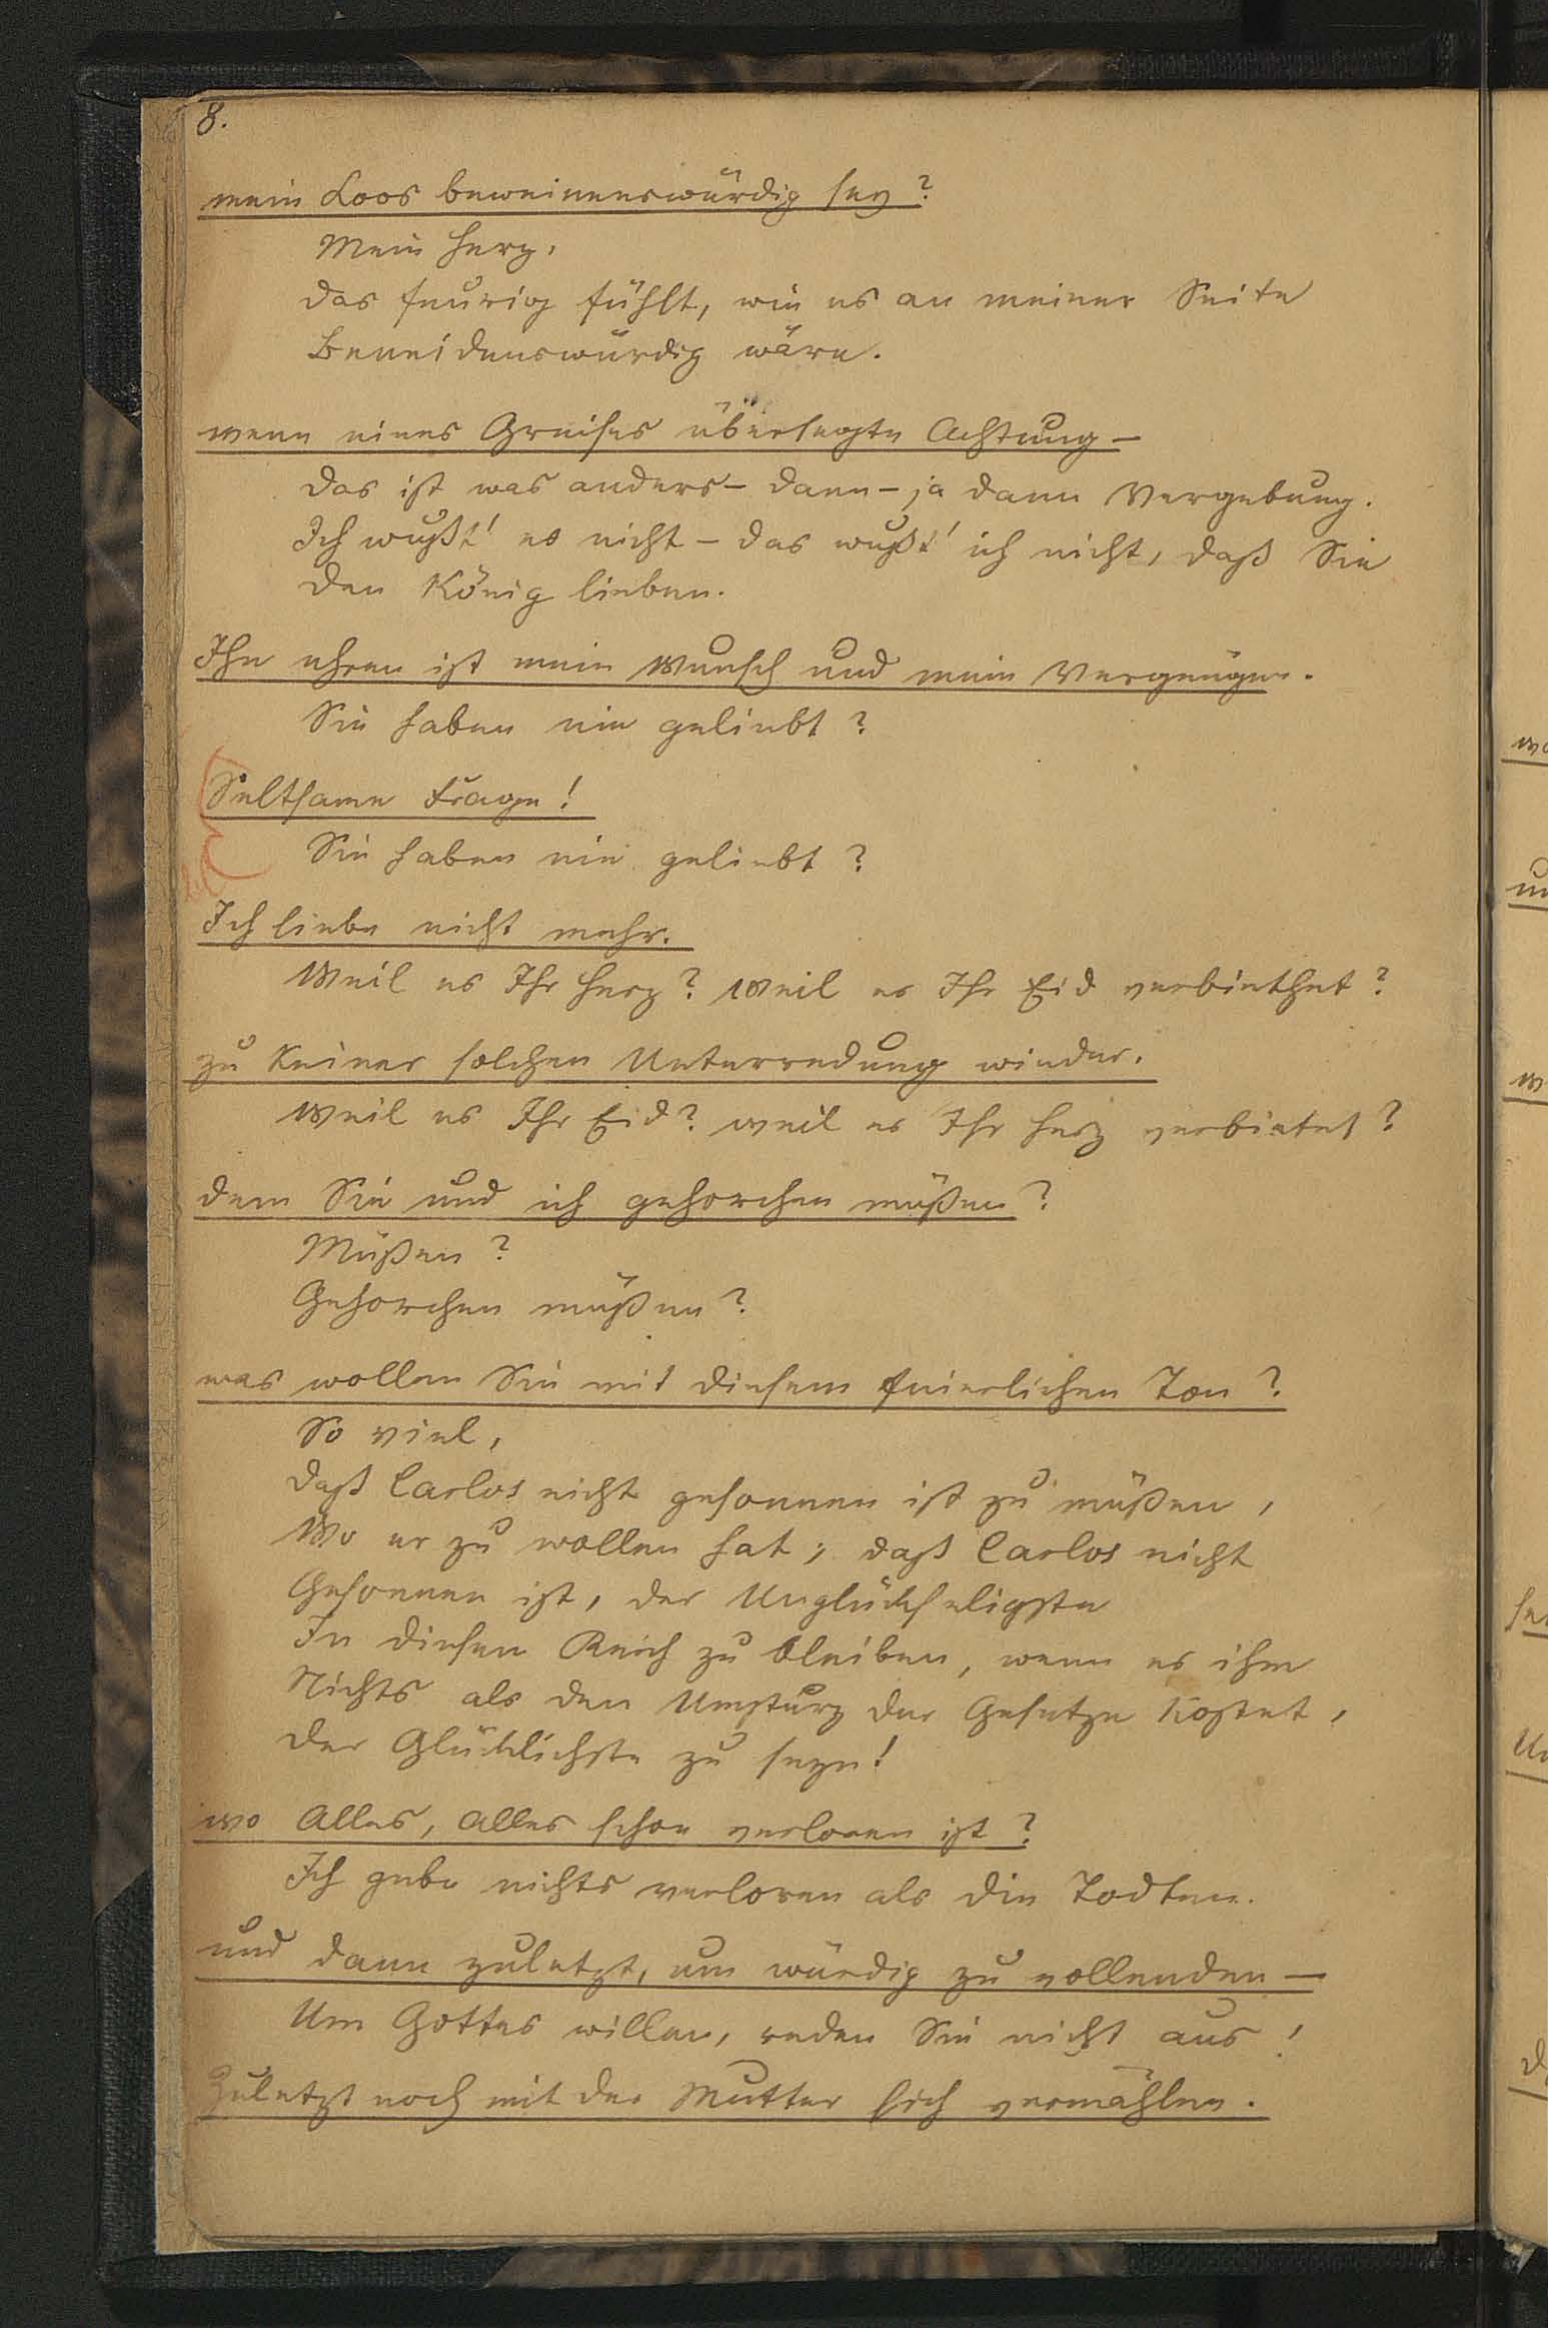 8.
mein Loos beweinenswürdig sey?
Mein Herz,
das feurig fühlt, wie es an meiner Seite
Beneidenswürdig wäre.
wenn eines Greises überlegte Achtung –
das ist was anders – dann – ja dann Vergebung.
Ich wußt' es nicht – das wußt' ich nicht, daß Sie
den König lieben.
Ihn ehren ist mein Wunsch und mein Vergnügen.
Sie haben nie geliebt?
Seltsame Frage!
Sie haben nie geliebt?
Ich liebe nicht mehr.
Weil es Ihr Herz? Weil es Ihr Eid verbiethet?
zu keiner solchen Unterredung wieder.
Weil es Ihr Eid? weil es Ihr Herz verbietet?
dem Sie und ich gehorchen müßen?
Müßen?
Gehorchen müßen?
was wollen Sie mit diesem feierlichen Ton?
So viel,
daß Carlos nicht gesonnen ist zu müßen,
Wo er zu wollen hat; daß Carlos nicht
Gesonnen ist, der Unglückseligste
In diesem Reich zu bleiben, wenn es ihm
Nichts als den Umsturz der Gesetze kostet,
der Glücklichste zu seyn!
wo Alles, Alles schon verloren ist?
Ich gebe nichts verloren als die Todten.
und dann zuletzt, um würdig zu vollenden –
Um Gottes willen, reden Sie nicht aus!
Zuletzt noch mit der Mutter sich vermählen.